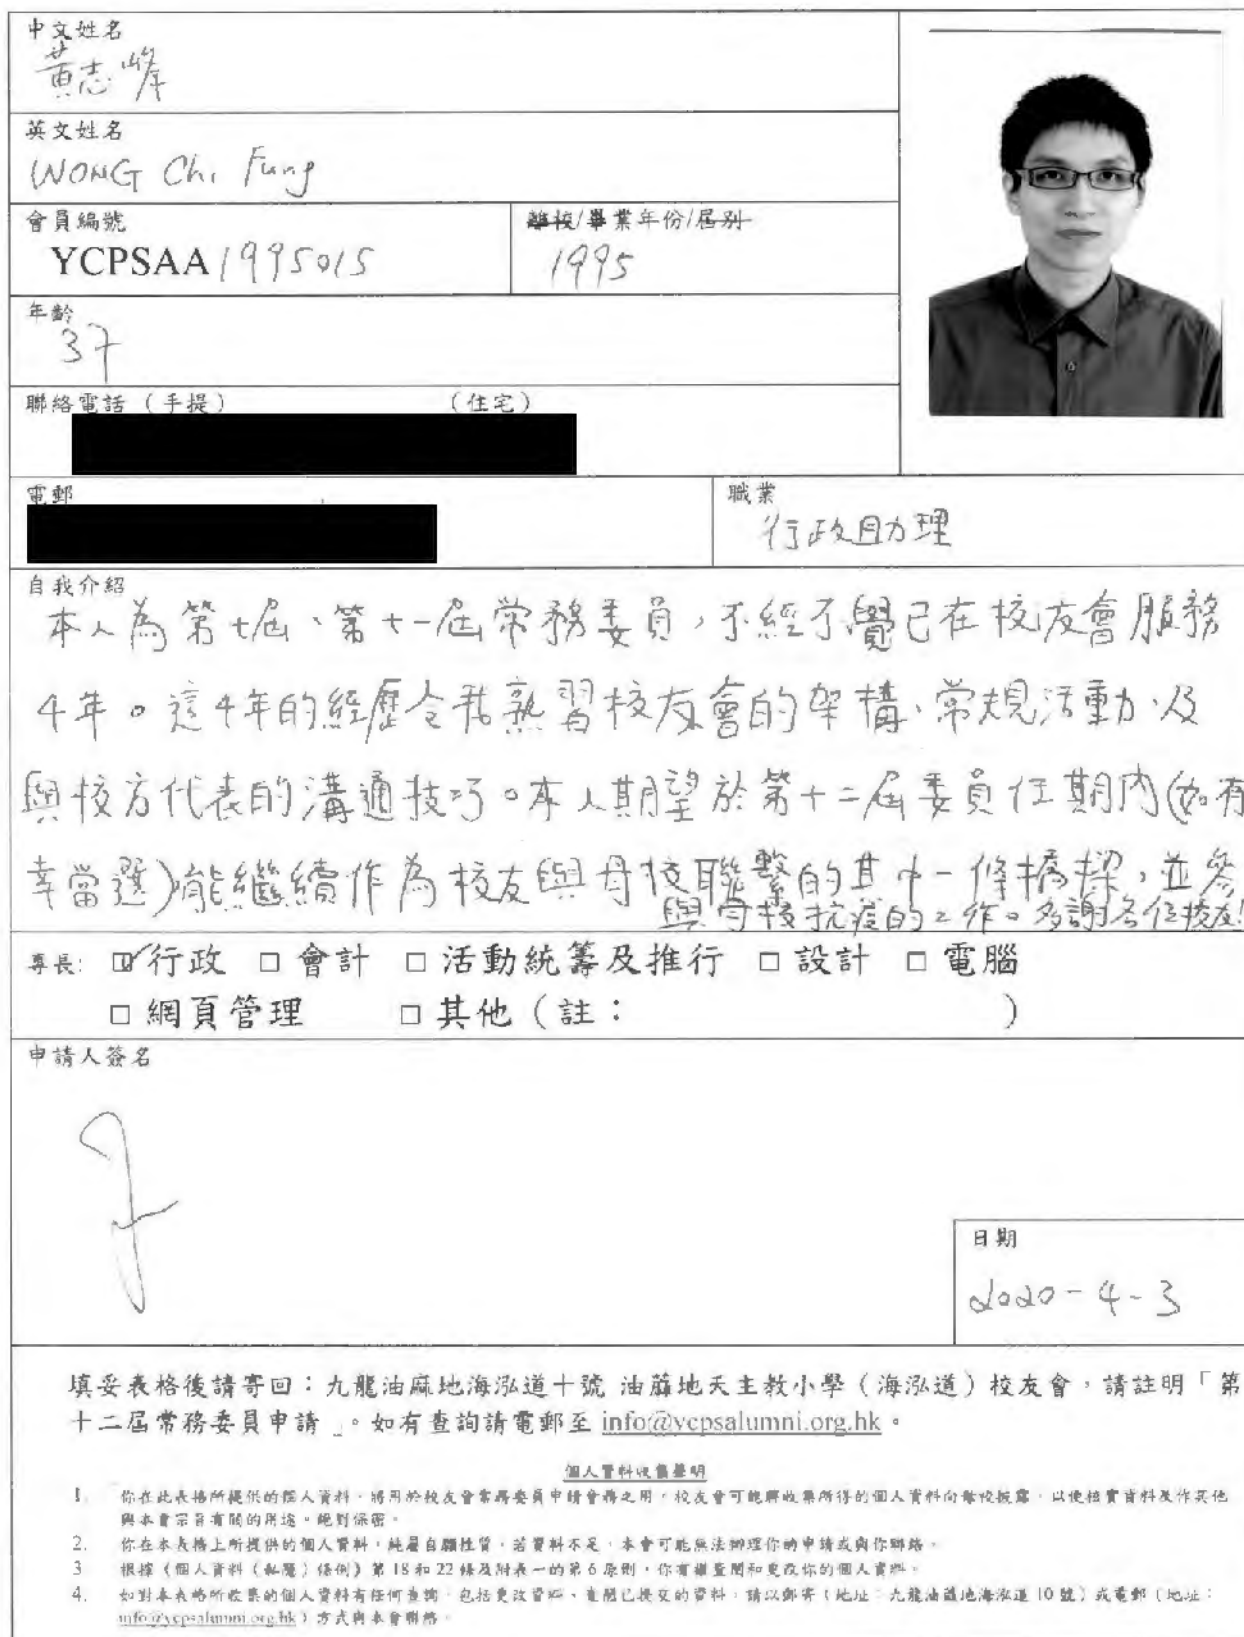 中文姓名
黃志峰
英文姓名
WONG Chi Fung
會員編號
YCPSAA 1995015
離校/畢業年份/屆別
1995
年齡
37
聯絡電話（手提） （住宅）
電郵
職業
行政助理
自我介紹
本人為第七屆、第十一屆常務委員，不經不覺已在校友會服務
4年。這4年的經歷令我熟習校友會的架構、常規活動、及
與校方代表的溝通技巧。本人期望於第十二屆委員任期內(如有
幸當選)能繼續作為校友與母校聯繫的其中一條橋樑，並參
與母校抗疫的工作。多謝各位校友!
專長: ☑行政 □會計 □活動統籌及推行 □設計 □電腦
□網頁管理 □其他（註： ）
申請人簽名
日期
2020-4-3
填妥表格後請寄回：九龍油麻地海泓道十號 油蔴地天主教小學（海泓道）校友會，請註明「第
十二屆常務委員申請」。如有查詢請電郵至 info@ycpsalumni.org.hk。
個人資料收集聲明
1. 你在此表格所提供的個人資料，將用於校友會常務委員申請會務之用，校友會可能將收集所得的個人資料向母校披露，以便核實資料及作其他
與本會宗旨有關的用途。絕對保密。
2. 你在本表格上所提供的個人資料，純屬自願性質，若資料不足，本會可能無法辦理你的申請或與你聯絡。
3 根據《個人資料（私隱）條例》第18和22條及附表一的第6原則，你有權查閱和更改你的個人資料。
4. 如對本表格所收集的個人資料有任何查詢，包括更改資料、查閱已提交的資料，請以郵寄（地址：九龍油蔴地海泓道10號）或電郵（地址：
info@ycpsalumni.org.hk）方式與本會聯絡。